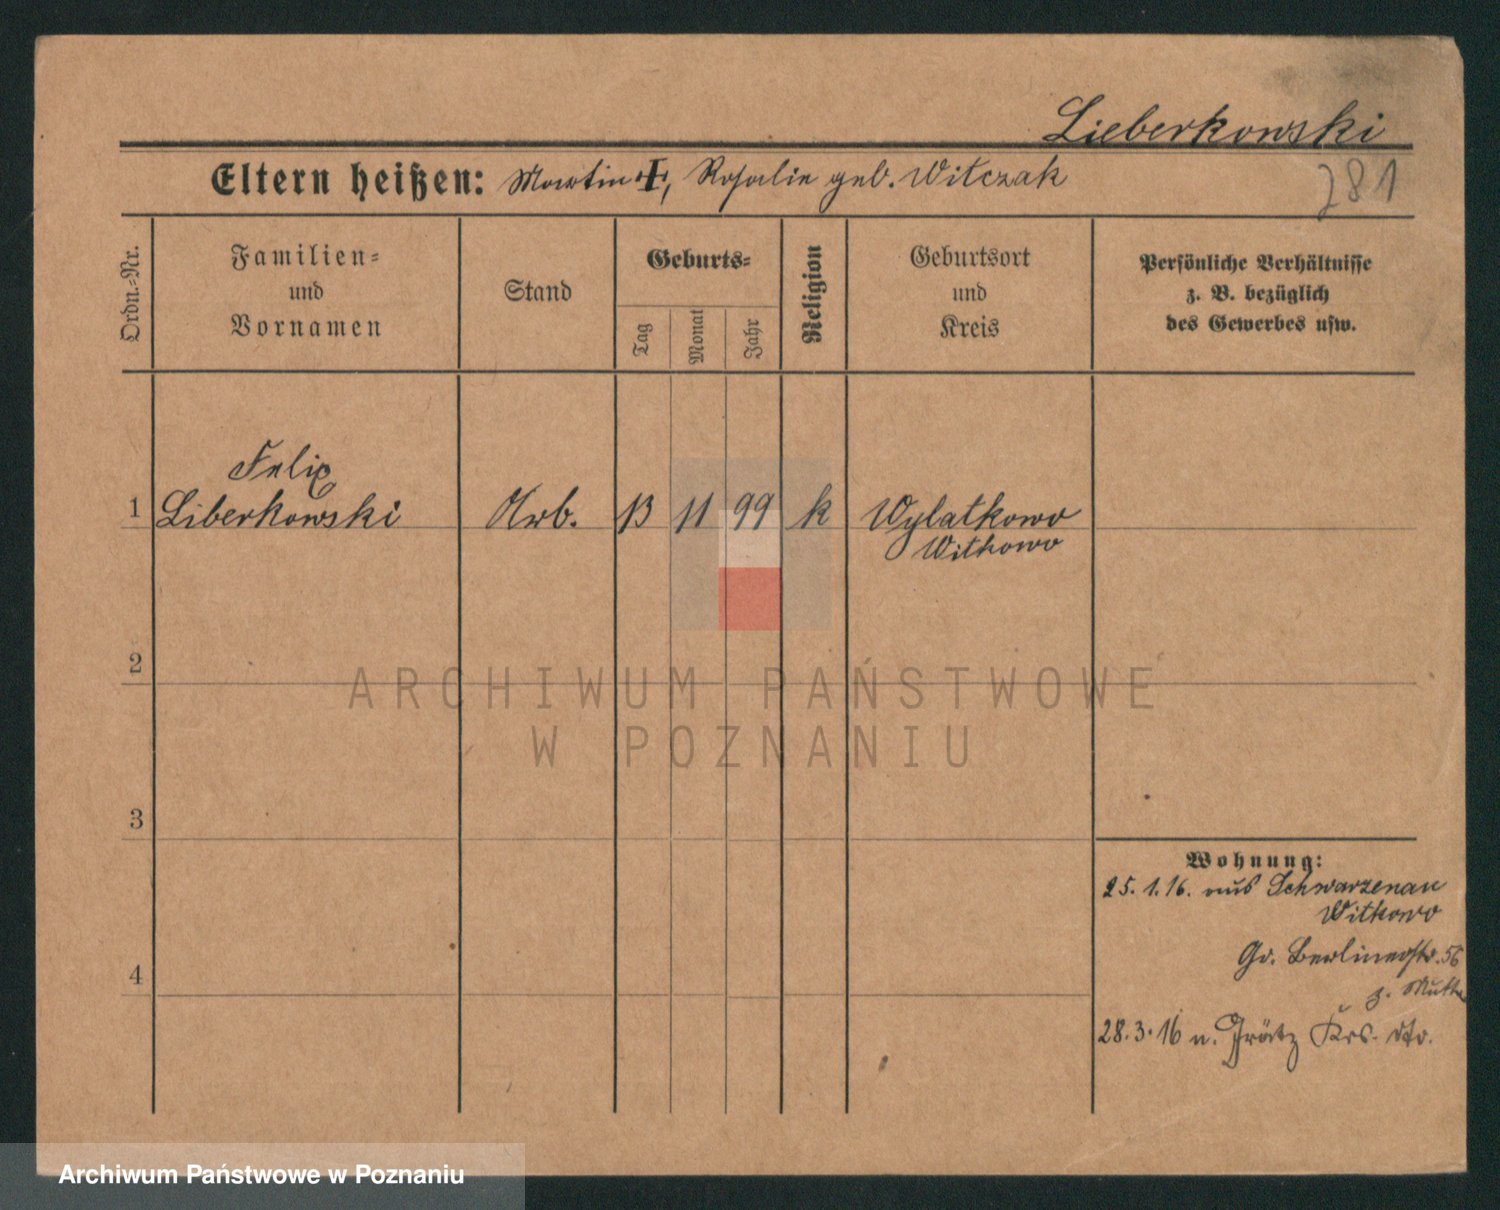 Lieberkowski
Eltern heißen: Martin †, Rosalie geb. Witczak
281
Ordn.-Nr.
Familien-
und
Vornamen
Stand
Geburts-
Tag
Monat
Jahr
Religion
Geburtsort
und
Kreis
Persönliche Verhältnisse
z. B. bezüglich
des Gewerbes usw.
Felix
1 Liberkowski Arb. 13 11 99 k Wylatkowo
Witkowo
2
3
4
Wohnung:
25.1.16. aus Schwarzenau
Witkowo
Gr. Berlinerstr. 56
z. Mutter
28.3.16 n. Grätz Krs. dto.
ARCHIWUM PAŃSTWOWE
W POZNANIU
Archiwum Państwowe w Poznaniu